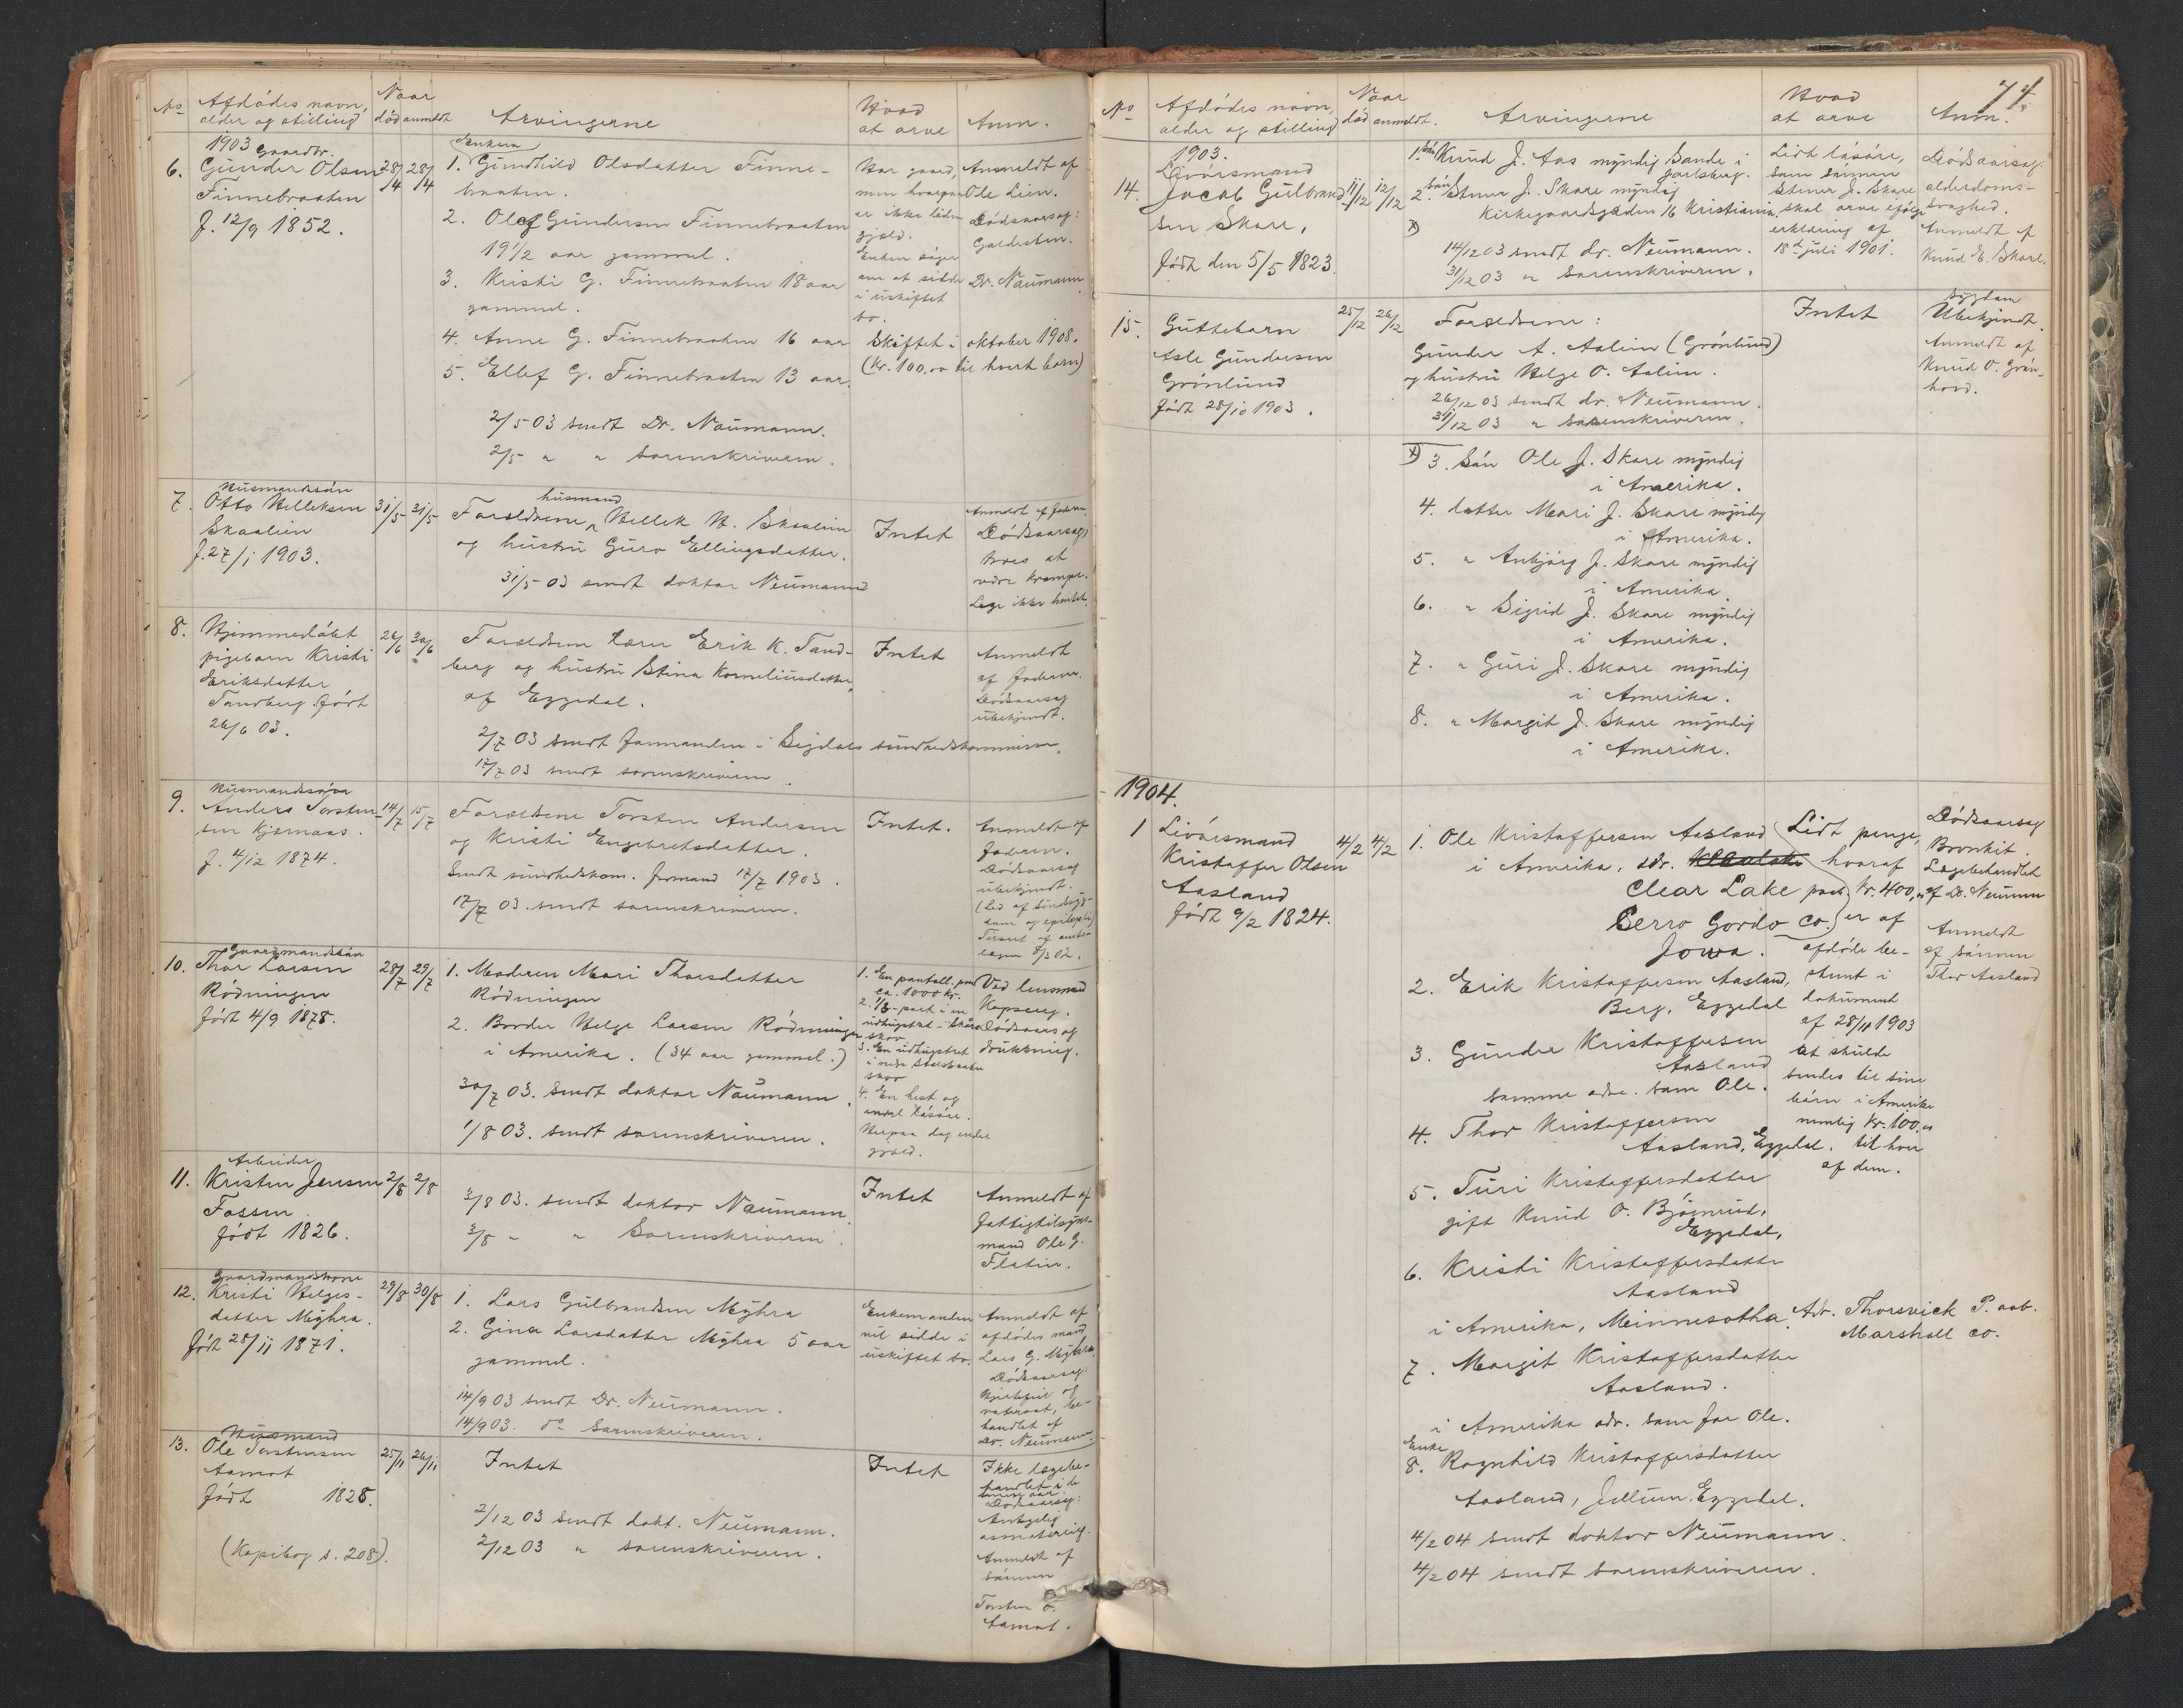 No Afdødes navn, alder og stilling Naar død anmeldt Arvingerne Hvad at arve Anm.
1903 Gaardbr.
6. Gunder Olsen Finnebraaten
f. 12/9 1852.
28/4 28/4
Enken
1. Gundhild Olsdatter Finne-
braaten.
2. Olaf Gundersen Finnebraaten
19 1/2 aar gammel.
3. Kristi G. Finnebraaten 18 aar
gammel.
4. Anne G. Finnebraaten 16 aar
5. Ellef G. Finnebraaten 13 aar.
2/5 03 sendt Dr. Naumann.
2/5 " " sorenskriveren.
Har gaard,
men hvorpaa
er ikke liden
gjæld.
Enken søger
om at sidde
i uskiftet
bo.
Skiftet i oktober 1908.
(Kr. 100,00 til hvert barn)
Anmeldt af
Ole Lien.
Dødsaarsag:
Galdesten.
Dr. Naumann
Husmandssøn
7. Otto Helleksen
Skaalien
f. 27/1 1903.
31/5 31/5
Forældrene husmand Hellek H. Skaalien
og hustru Guro Ellingsdatter.
31/5 03 sendt doktor Neumann
Intet
Anmeldt af faderen.
Dødsaarsag
troes at
være krampe.
Læge ikke hentet.
8. Hjemmedøbt
pigebarn Kristi
Eriksdatter
Sandberg født
26/6 03.
26/6 30/6
Forældrene lærer Erik K. Sand-
berg og hustru Stina Korneliusdatter
af Eggedal.
2/7 03 sendt formanden i Sigdals sundhedskommission.
17/7 03 sendt sorenskriveren.
Intet
Anmeldt
af faderen.
Dødsaarsag
ubekjendt.
Husmandssøn
9. Anders Torsten-
sen Kjomaas.
f. 4/12 1874.
14/7 15/7
Forældrene Torsten Andersen
og Kristi Engebretsdatter.
Sendt sundhedskom. formand 17/7 1903.
17/7 03. sendt sorenskriveren.
Intet.
Anmeldt af
faderen.
Dødsaarsag
ubekjendt.
(Led af sindssyg-
dom og epilepsi)
Gaardmandssøn
10. Thor Larsen
Rødningen
født 4/9 1878.
28/7 29/7
1. Moderen Mari Thorsdatter
Rødningen
2. Broder Helge Larsen Rødningen
i Amerika. (34 aar gammel.)
30/7 03. sendt doktor Naumann.
1/8 03. sendt sorenskriveren.
1. En pantobl. paa
ca. 1000 kr.
2. 1/2 part i en
udhugstret i Skare
skov
3. En udhugstret
i
skov
4. En hest og
endel løsøre.
Herpaa dog endel
gjæld.
Ved lensmand
Kopseng.
Dødsaarsag
drukning.
Arbeider
11. Kristen Jensen
Fossen
født 1826.
2/8 2/8
3/8 03. sendt doktor Naumann.
3/8 " " Sorenskriveren.
Intet
Anmeldt af
fattigtilsyns-
mand Ole G.
Flatin.
Gaardmandskone
12. Kristi Helges-
datter Myhra.
født 28/11 1871.
29/8 30/8
1. Lars Gulbrandsen Myhra
2. Gina Larsdatter Myhra 5 aar
gammel.
14/9 03 sendt Dr. Neumann.
14/9 03. do Sorenskriveren.
Enkemanden
vil sidde i
uskiftet bo.
Anmeldt af
afdødes mand
Lars G. Myhra.
Dødsaarsag:
Hjertefeil og
vatersot, be-
handlet af
Dr. Neumann.
Husmand
13. Ole Torstensen
Aamot
født 1828.
(Kopibog s. 208).
25/11 26/11
Intet
2/12 03 sendt dokt. Neumann.
2/12 03 " sorenskriveren.
Intet
Ikke lægebe-
handlet i de
senere aar.
Dødsaarsag:
Antagelig
Anmeldt af
sønnen
Torsten O.
Aamot.
74.
No Afdødes navn, alder og stilling Naar død anmeldt. Arvingerne Hvad at arve Anm.
1903.
Livørsmand
14. Jacob Gulbrand-
sen Skare,
født den 5/5 1823.
11/12 12/12
1. søn Knud J. Aas myndig Sande i
Jarlsberg.
2. søn Stener J. Skare myndig
Kirkegaardsgaden 16 Kristiania.
14/12 03 sendt dr. Neumann.
31/12 03 " sorenskriveren.
Lidt løsøre,
som sønnen
Stener J. Skare
skal arve ifølge
erklæring af
18de juli 1901.
Dødsaarsag:
alderdoms-
svaghed.
Anmeldt af
Knud E. Skare.
15. Guttebarn
Asle Gundersen
Grønlund
født 28/10 1903.
25/12 26/12
Forældrene:
Gunder A. Aalien (Grønlund)
og hustru Helge O. Aalien.
26/12 03 sendt dr. Neumann.
31/12 03 " sorenskriveren.
Intet
sygdom
Ubekjendt.
Anmeldt af
Knud O. Grøn-
hovd.
3. Søn Ole J. Skare myndig
i Amerika.
4. datter Mari J. Skare myndig
i Amerika.
5. " Anbjørg J. Skare myndig
i Amerika.
6. " Sigrid J. Skare myndig
i Amerika.
7. " Guri J. Skare myndig
i Amerika.
8. " Margit J. Skare myndig
i Amerika.
1904.
1 Livørsmand
Kristoffer Olsen
Aasland
født 9/2 1824.
4/2 4/2
1. Ole Kristoffersen Aasland
i Amerika, adr.
Clear Lake post
Cerro Gordo Co.
Jowa.
2. Erik Kristoffersen Aasland,
Berg, Eggedal
3. Gunder Kristoffersen
Aasland
samme adr. som Ole.
4. Thor Kristoffersen
Aasland, Eggedal.
5. Turi Kristoffersdatter
gift Knud O. Bjørnrud,
Eggedal,
6. Kristi Kristoffersdatter
Aasland
i Amerika, Minnesotha. Adr. Thorsvick P. aab.
Marshall Co.
7. Margit Kristoffersdatter
Aasland.
i Amerika adr. som for Ole.
Enke
8. Ragnhild Kristoffersdatter
Aasland, Jellum. Eggedal.
4/2 04 sendt doktor Neumann.
4/2 04 sendt sorenskriveren.
Lidt penge,
hvoraf
kr. 400,00
er af
afdøde be-
stemt i
dokument
af 28/11 1903
at skulde
sendes til sine
børn i Amerika
nemlig kr. 100,00
til hver
af dem.
Dødsaarsag
Bronkit.
Lægebehandlet
af Dr. Neumann
Anmeldt
af sønnen
Thor Aasland